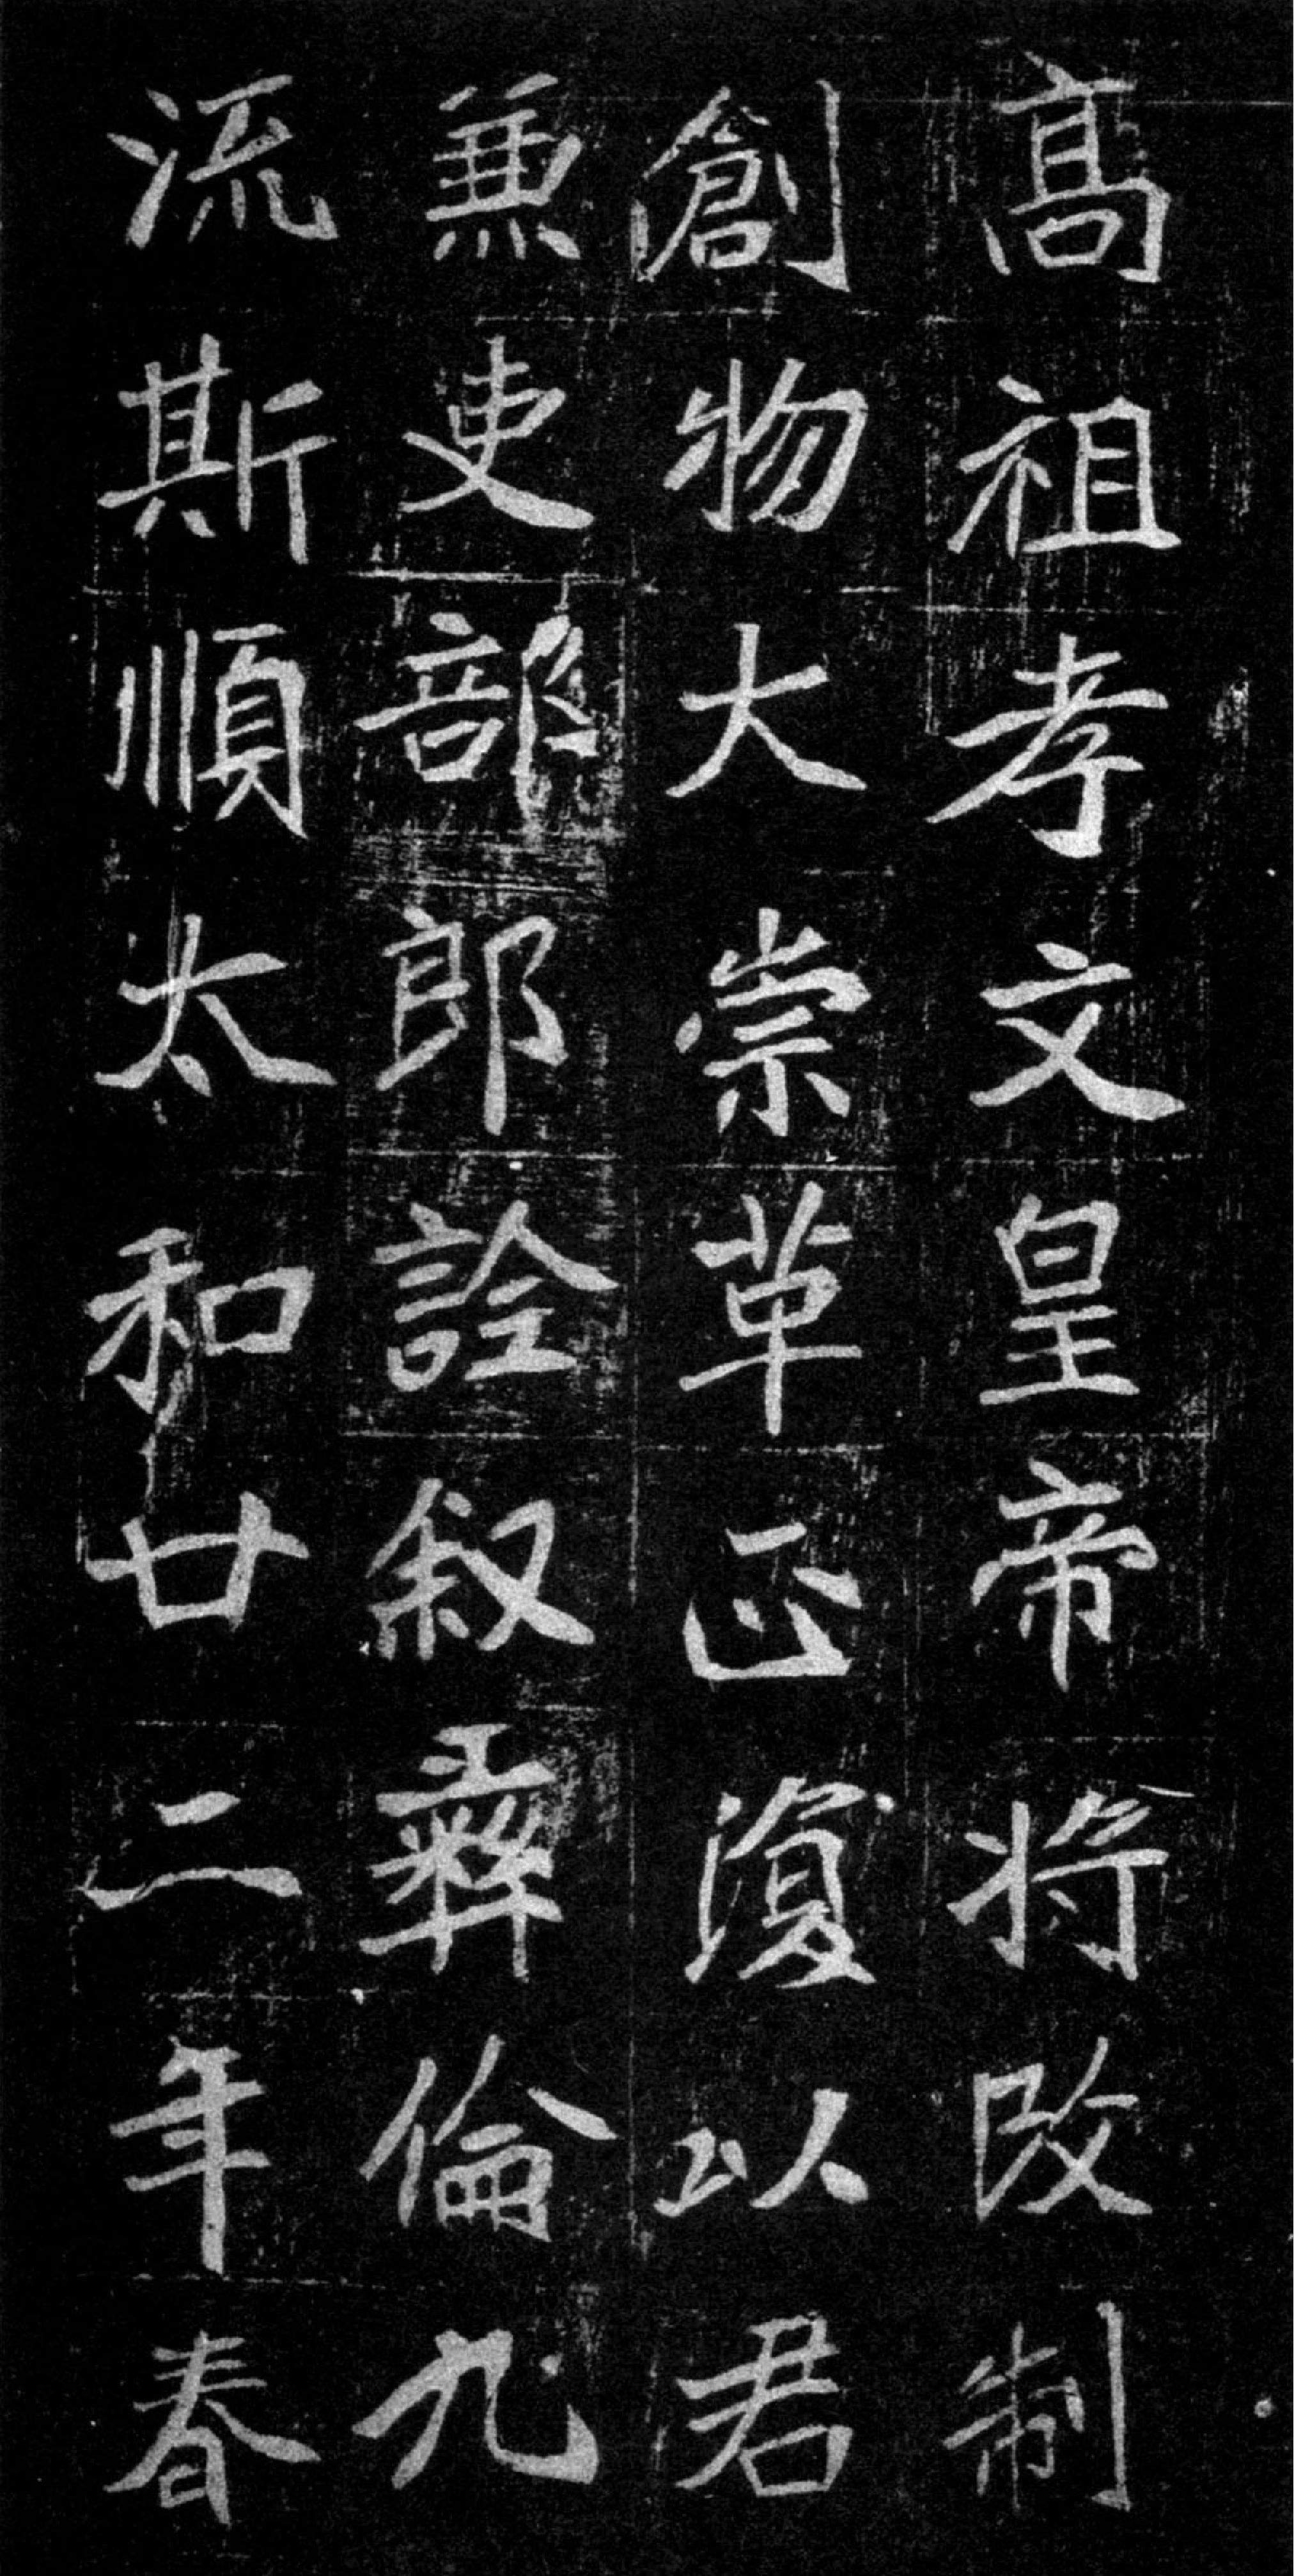 高祖孝文皇帝將改制
創物大崇革正復以君
兼吏部郎詮敘彝倫九
流斯順太和廿二年春